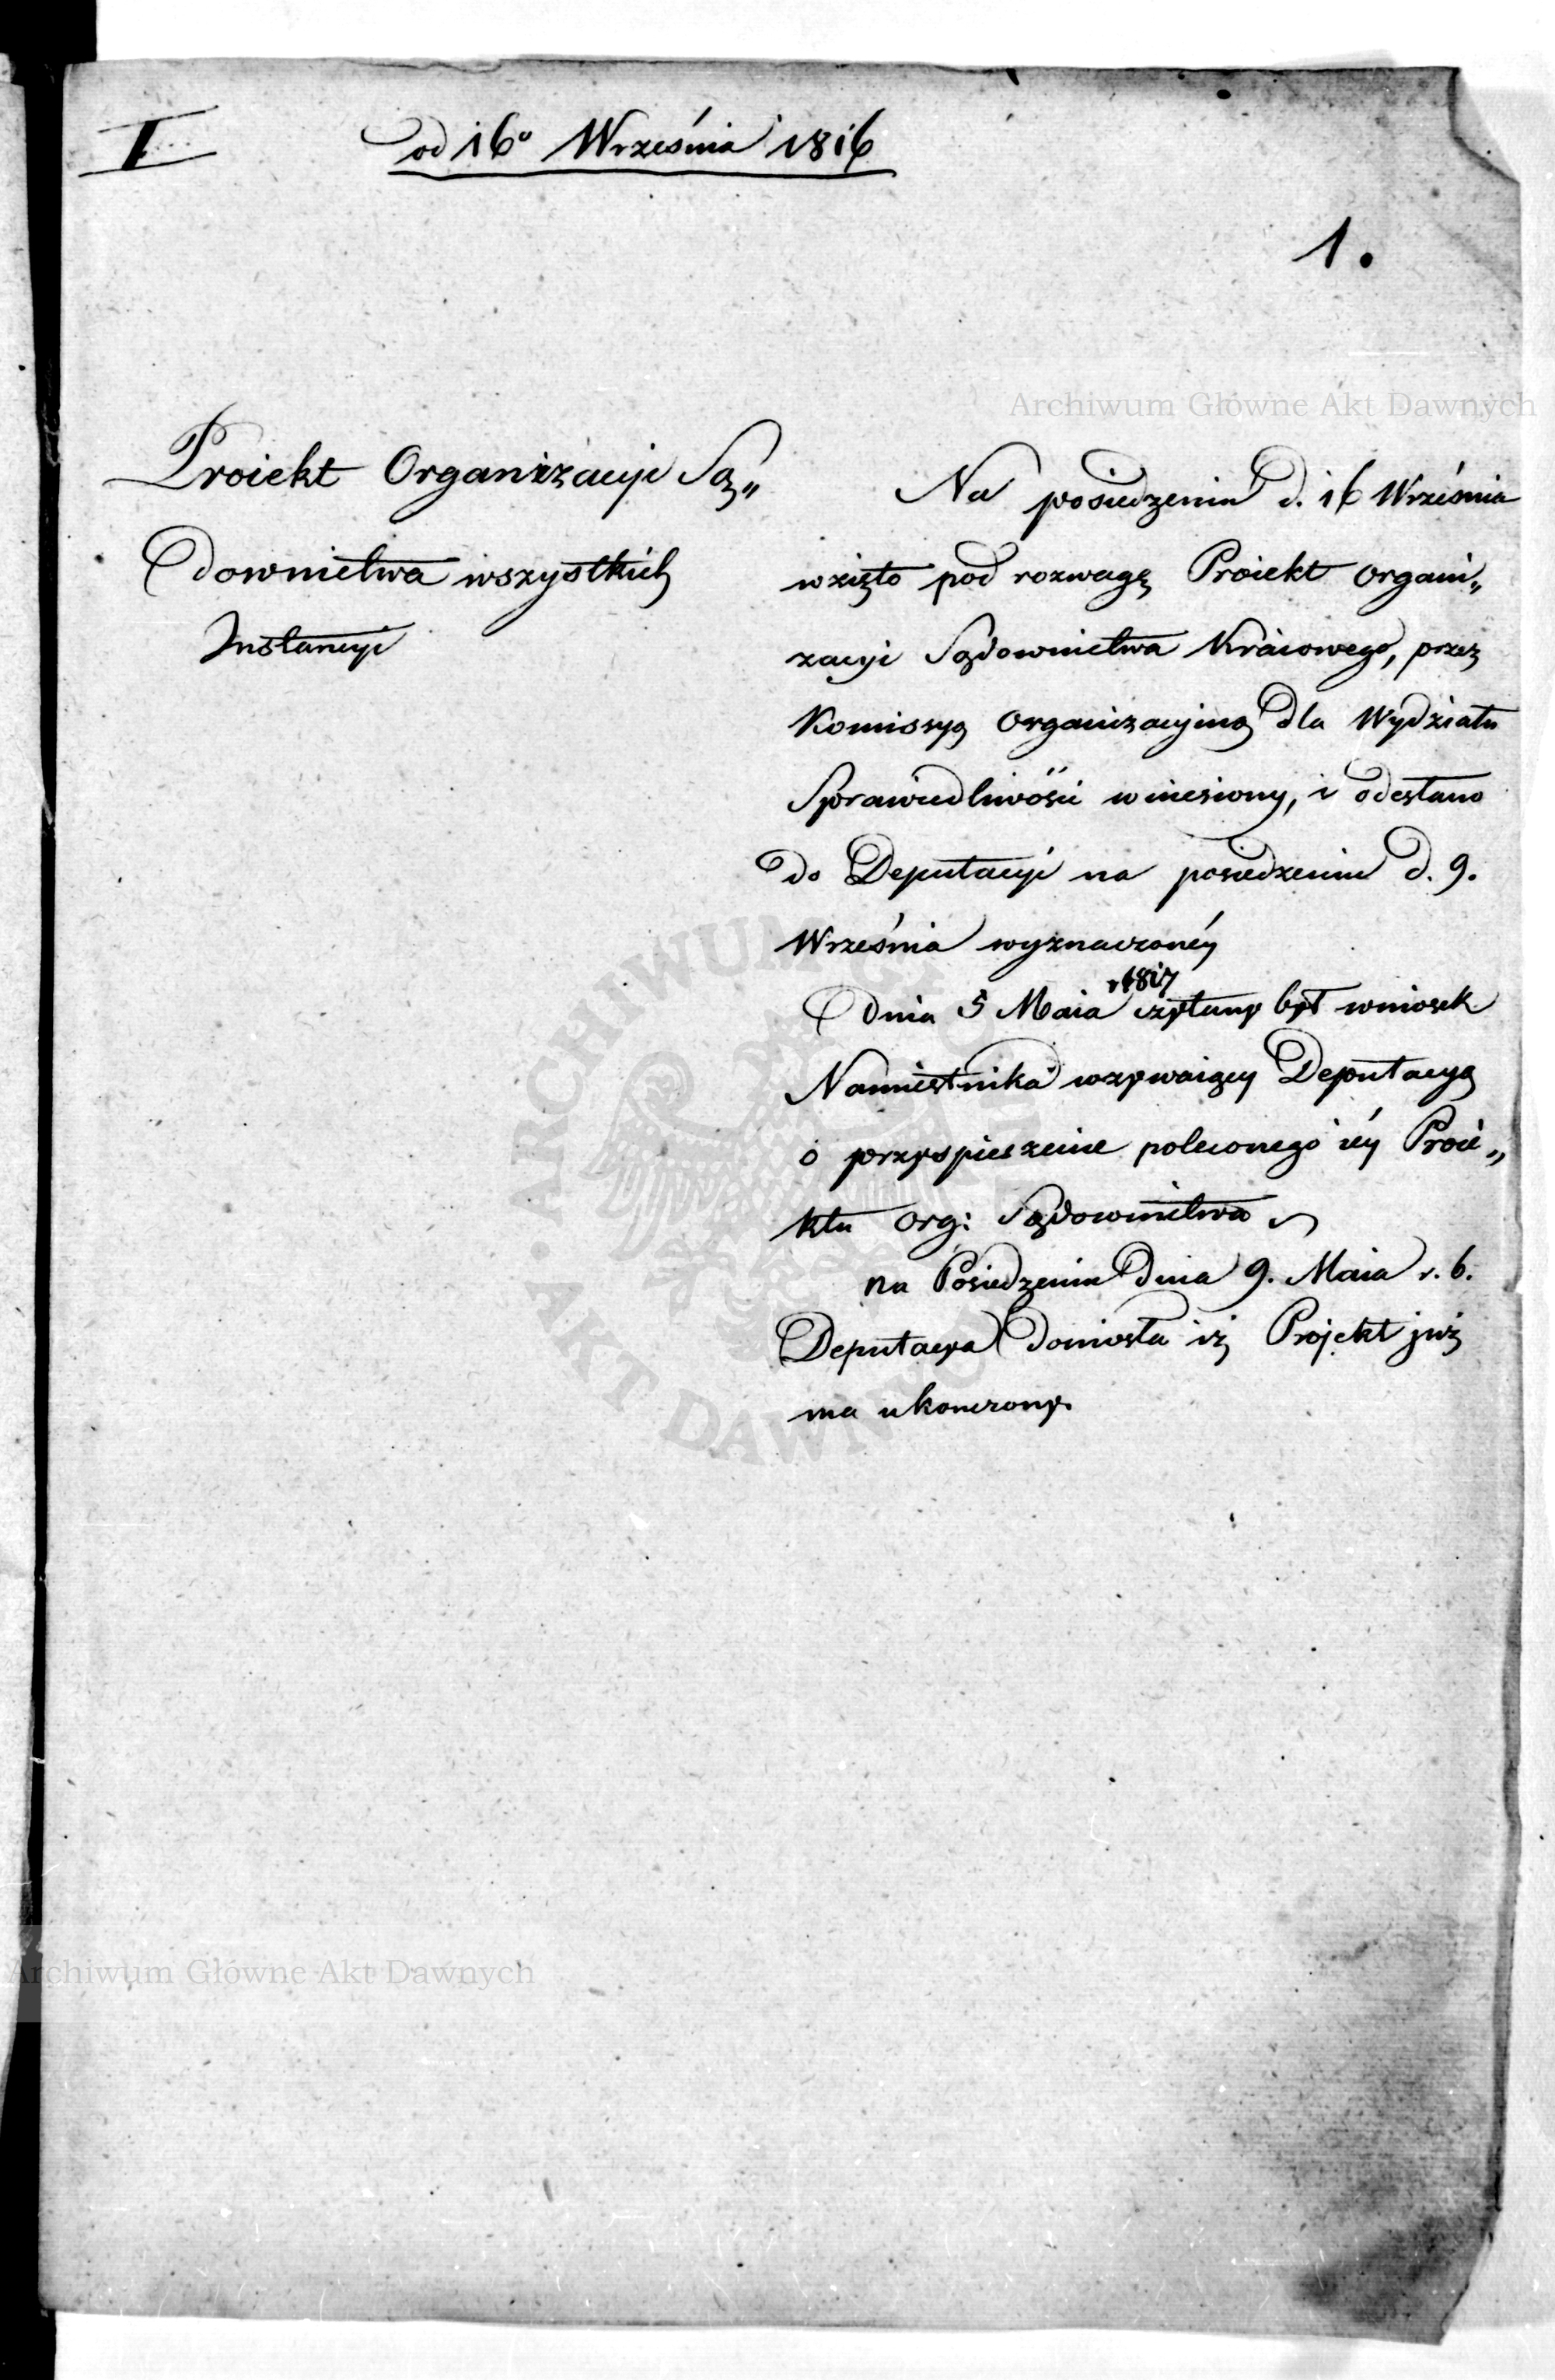 I
od 16º Września 1816
1.
Archiwum Główne Akt Dawnych
Proiekt Organizacyi Są„
downictwa wszystkich
Instancyi
Na posiedzeniu d. 16 Września
wzięto pod rozwagę Proiekt organi„
zacyi Sądownictwa Kraiowego, przez
Komissyą Organizacyiną dla Wydziału
Sprawiedliwości wniesiony, i odesłano
do Deputacyi na posiedzeniu d. 9.
Września wyznaczonéy
r 1817
Dnia 5 Maia czytany był wniosek
Namiestnika wzywaiący Deputacyą
o przyspieszenie poleconego iéy Proie„
ktu org: Sądownictwa
na Posiedzeniu Dnia 9. Maia r. b.
Deputacya doniosła iż Projekt już
ma ukończony.
ARCHIWUM GŁÓWNE AKT DAWNYCH
Archiwum Główne Akt Dawnych